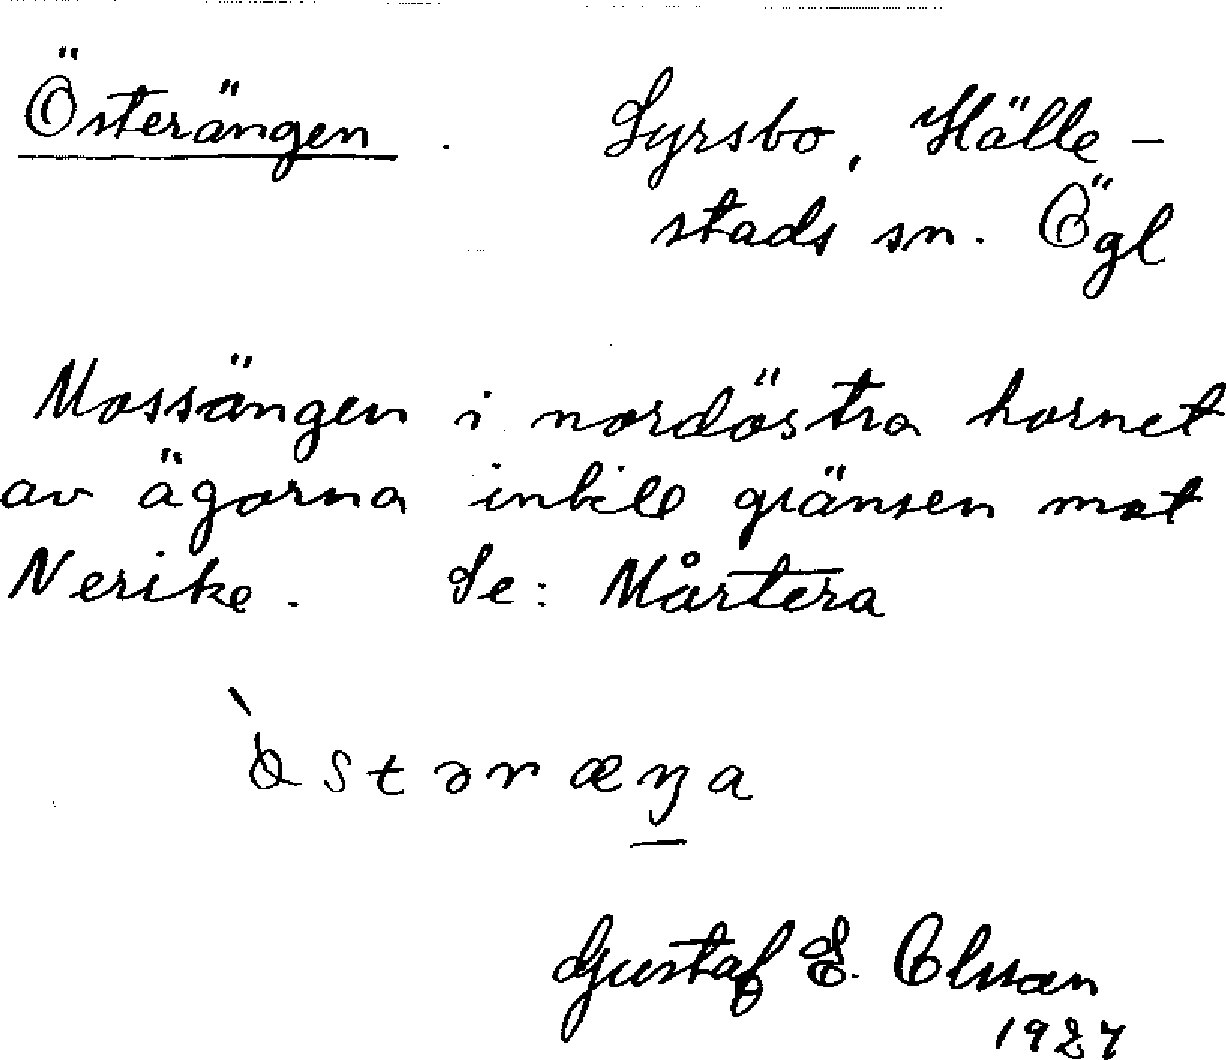 Österängen. Syrsbo, Hälle-
stads sn. Ögl
Mossängen i nordöstra hornet
av ägorna intill gränsen mot
Nerike. Se: Mårtera
Gustaf E. Olsson
1927